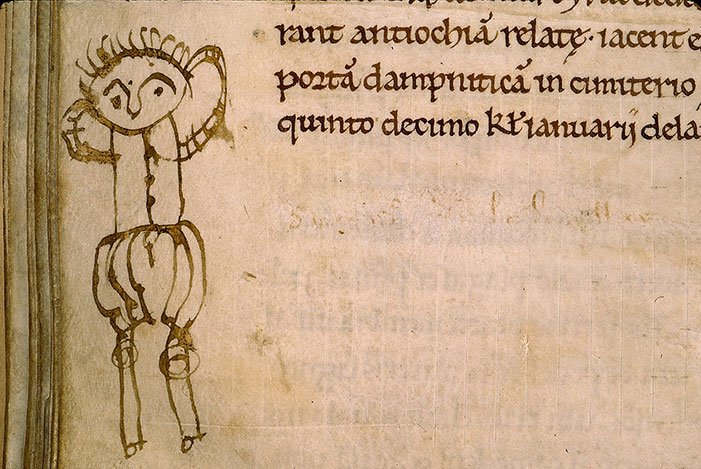 rant antiochiā relatę · iacent e
portā dampniticā in cimiterio
quinto decimo kł ianuarij dela